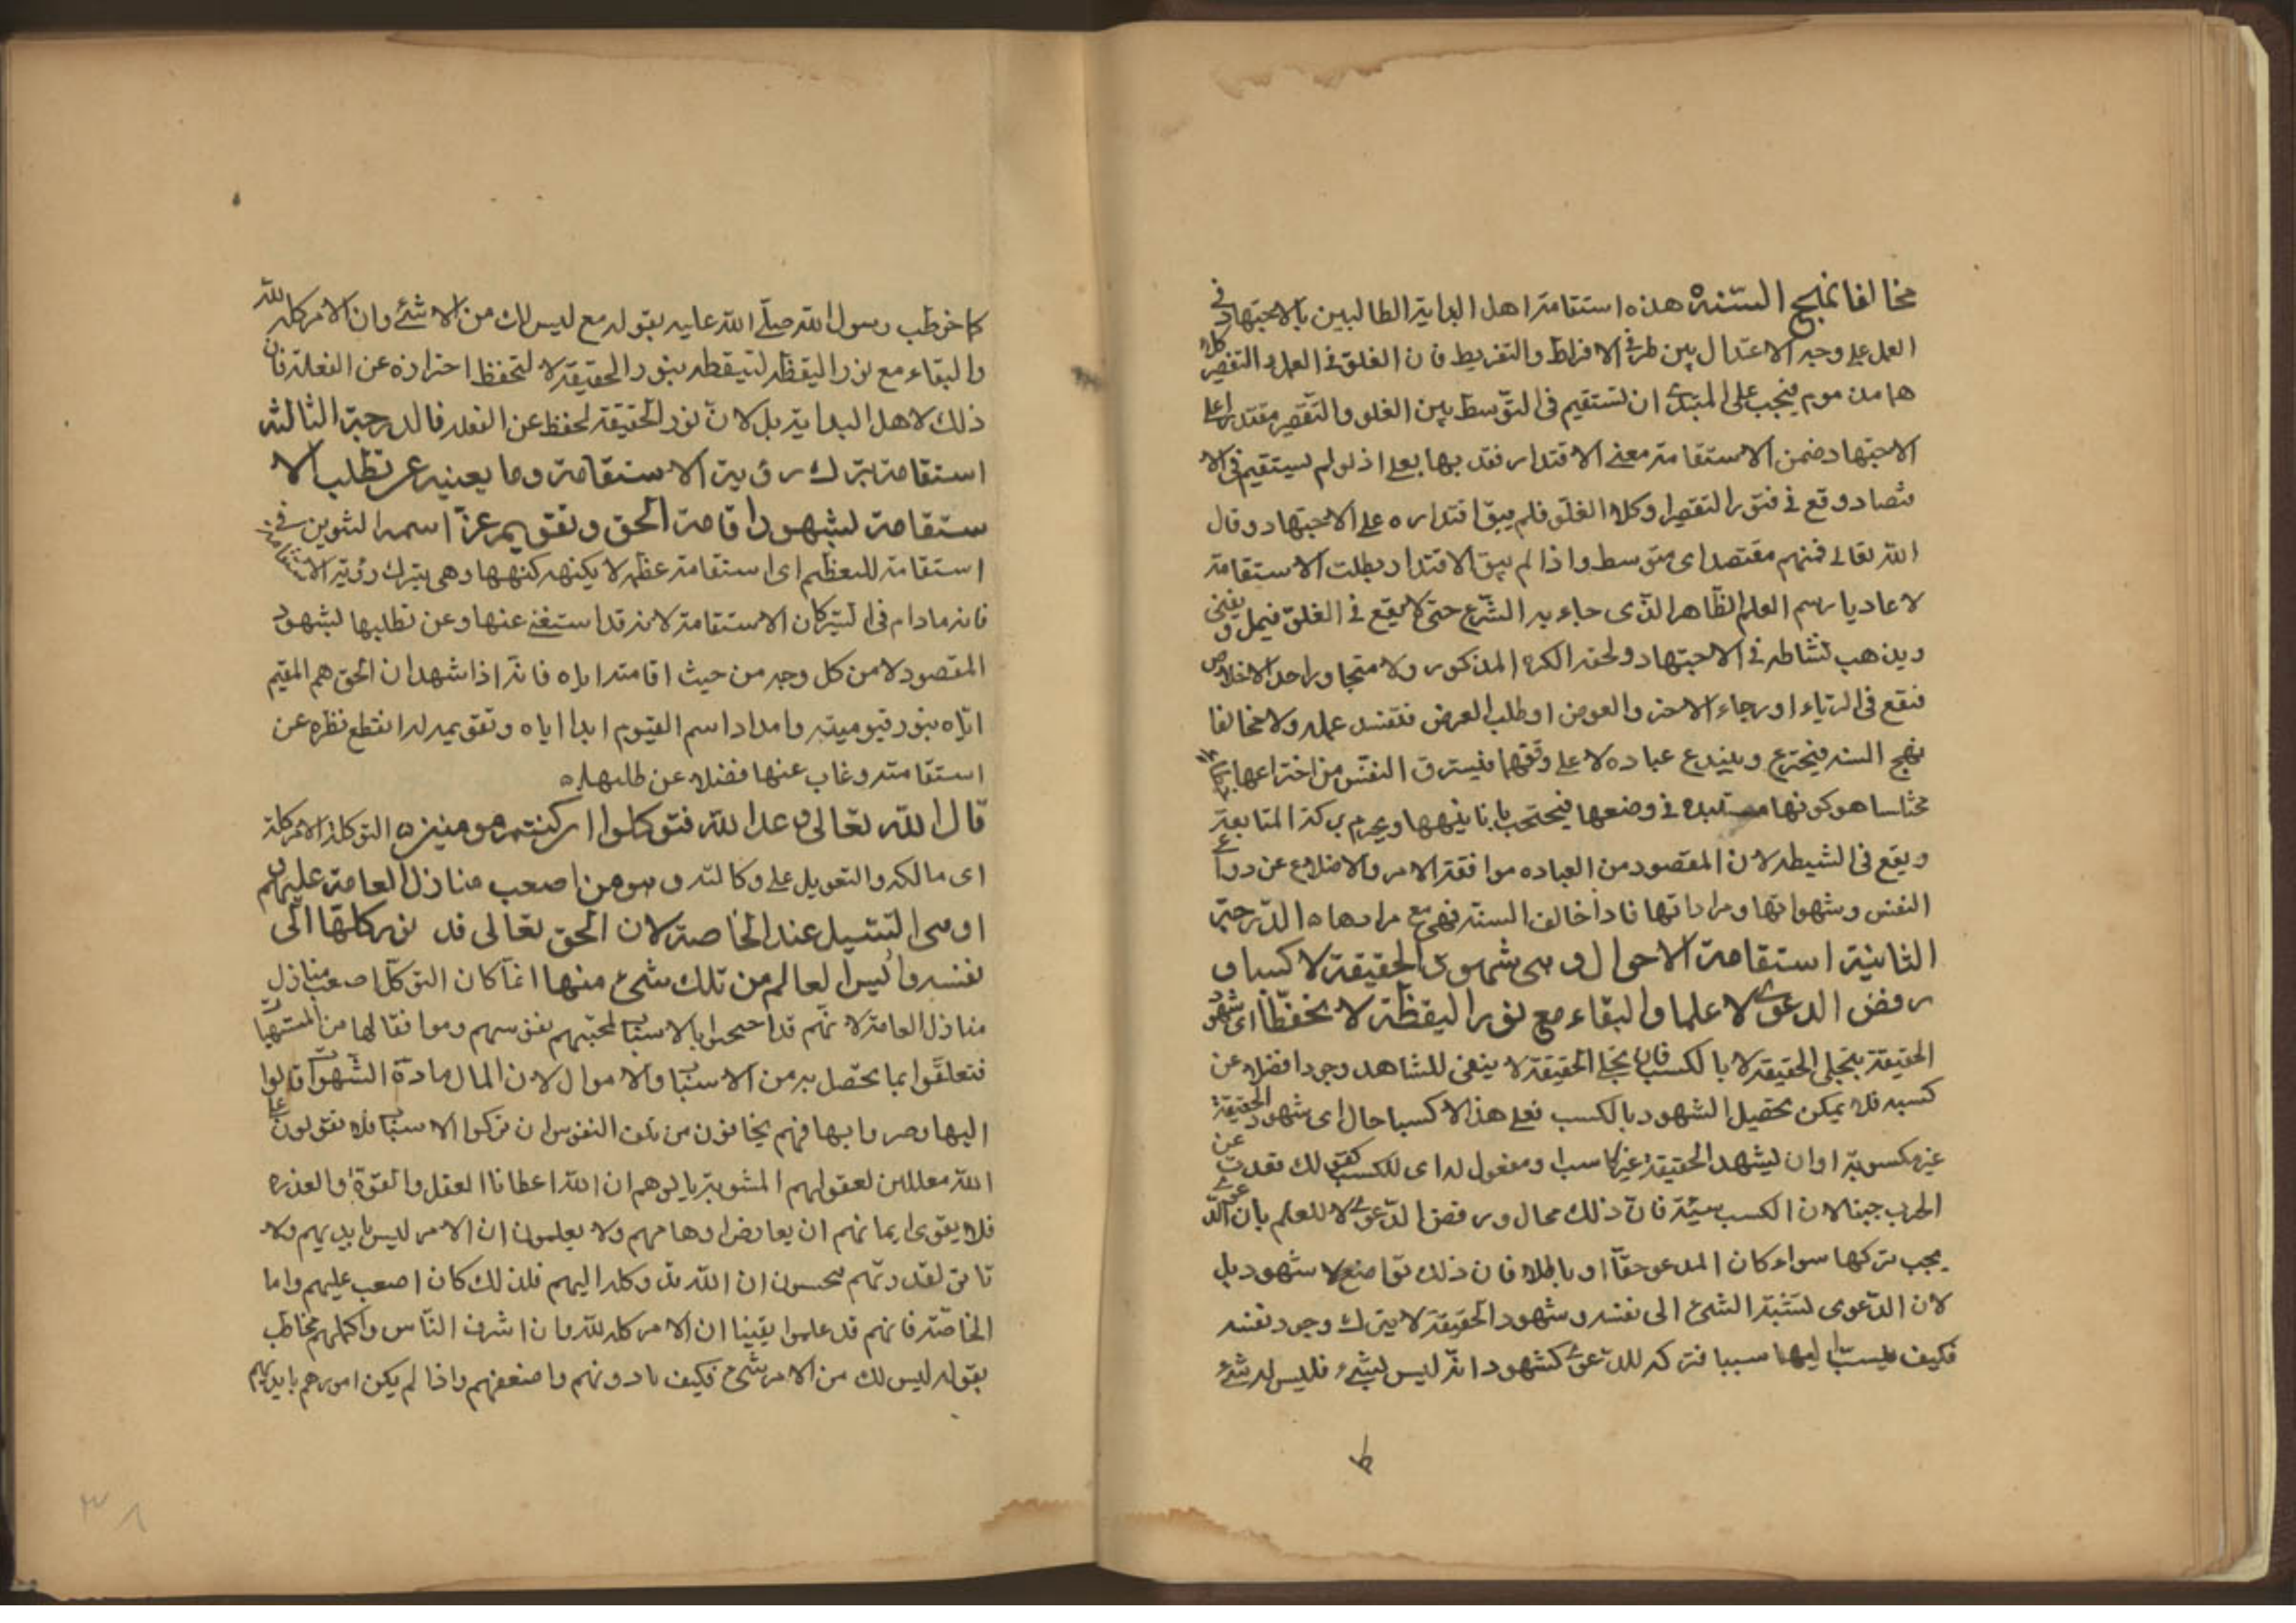 مخالفا نهج السنة هذه استقامة اهل البداية الطالبين بالاجتهاد في
العمل على وجه الاعتدال بين طرفي الافراط والتفريط فان الغلو في العمل والتقصير كلا
هما مذموم فيجب على المبتدى ان تستقيم في التوسط بين الغلو والتقصير مقتدرا على
الاجتهاد ضمن الاستقامة معنى الاقتدار فقد بها بعلى اذ لو لم يستقيم في الا
قتصاد وقع في فتور التقصير او كلال الغلو فلم يبق اقتداره على الاجتهاد وقال
الله تعالى فمنهم مقتصد اى متوسط واذا لم يبق الاقتدار بطلت الاستقامة
لا عاديا رسم العلم الظاهر الذى جاء به الشرع حتى لا يقع في الغلو فيمل و يفنى
ويذهب نشاطه في الاجتهاد ولحقه الكره المذكور ولا متجاوزا حد الاخلاص
فيقع في الرياء او رجاء الاجر والعوض او طلب العرض فتفسد عمله ولا مخالفا
نهج السنه فيخترع ويبتدع عباده لا على وفقها فيسترق النفس من اختراعها
هو كونها مستبده في وضعها فيحتجب بانانيتها ويحرم بركة المتابعة
ويقع في الشيطه لان المقصود من العباده موافقة الامر والاخلاع عن دواعى
النفس وشهواتها ومراداتها فاذا خالف السنه فهى مع مرادها ه الدرجة
الثانية استقامة الاحوال وهى شهود الحقيقة لا كسبا و
رفض الدعوى لا علما والبقاء مع نور اليقظة لا تحفظا اى شهود
الحقيقة بتجلى الحقيقة لا بالكسب فان تجلى الحقيقة لا يبقى للشاهد وجودا فضلا عن
كسبه فلا يمكن تحصيل الشهود بالكسب فعلى هذا لا كسبا حال اى شهود الحقيقة
غير مكسوبة او ان ليشهد الحقيقة غير كاسب او مفعول له اى للكسب كقولك قعدت عن
الحرب جبنا لان الكسب سيئة فان ذلك محال ورفض الدعوى لا للعلم بان الدعوى
يجب تركها سواء كان المدعو حقا او باطلا فان ذلك تواضع لا شهود بل
لان الدعوى لنسبة الشئ الى نفسه وشهود الحقيقة لا يترك وجود نفسه
فكيف ينسب اليها سببا فتركه للدعوى كشهود انه ليس بشئ فليس له شئ
كما خوطب رسول الله صلى الله عليه بقوله مع ليس لك من الامر شئ وان الامر كله لله
والبقاء مع نور اليقظه لتيقظه بنور الحقيقة لا لتحفظ احترازه عن الغفلة فان
ذلك لاهل البداية بل لان نور الحقيقة يحفظ عن الغفله فا لدرجة الثالثه
استقامة بترك رؤية الاستقامة وما يعنيه عن تطلب الا
ستقامة لشهود اقامة الحق وتقويمه عز اسمه التنوين في
استقامة للتعظيم اى استقامة عظمه لا يكنهه كنهها وهى بترك رؤية الاستقامة
فانه مادام في السير كان الاستقامة لانه قد استغنى عنها وعن تطلبها لشهود
المقصود لا من كل وجه من حيث اقامته اياه فانه اذا شهد ان الحق هم المقيم
اياه بنور قيوميته وامداد اسم القيوم ابدا اياه وتقويمه له انقطع نظره عن
استقامته وغاب عنها فضلا عن طلبها ه
قال الله تعالى وعلى الله فتوكلوا ان كنتم مومنين ه التوكل كلة الامر كله
اى مالكه والتعويل على وكالته وهو من اصعب منازل العامة عليهم
واوهى السبيل عند الخاصة لان الحق تعالى قد وكل الامور كلها الى
نفسه وأيس العالم من تلك شئ منها انما كان التوكل اصعب منازل
منازل العامة لانهم قد احتجبوا بالاسباب لمحبتهم نفوسهم وموافقا لها من المشتهيات
فتعلقوا بما يحصل به من الاسباب والاموال لان المال مادة الشهوات قالوا
اليها وصروا بها فهم يخافون من تلف النفوس ان تركوا الاسباب فلا يقولون على
الله معللين لعقولهم المشوبة بالوهم ان الله اعطانا العقل والقوة والقدره
فلا يقوى ايمانهم ان يعارض اوهامهم ولا يعلمون ان الامر ليس بايديهم ولا
تاثير لقدرتهم يحسبون ان الله قد وكله اليهم فلذلك كان اصعب عليهم واما
الخاصة فانهم قد علموا يقينا ان الامر كله لله وان اشرف الناس واكملهم مخاطب
بقوله ليس لك من الامر شئ فكيف بادونهم واضعفهم واذا لم يكن امورهم بايديهم
ط